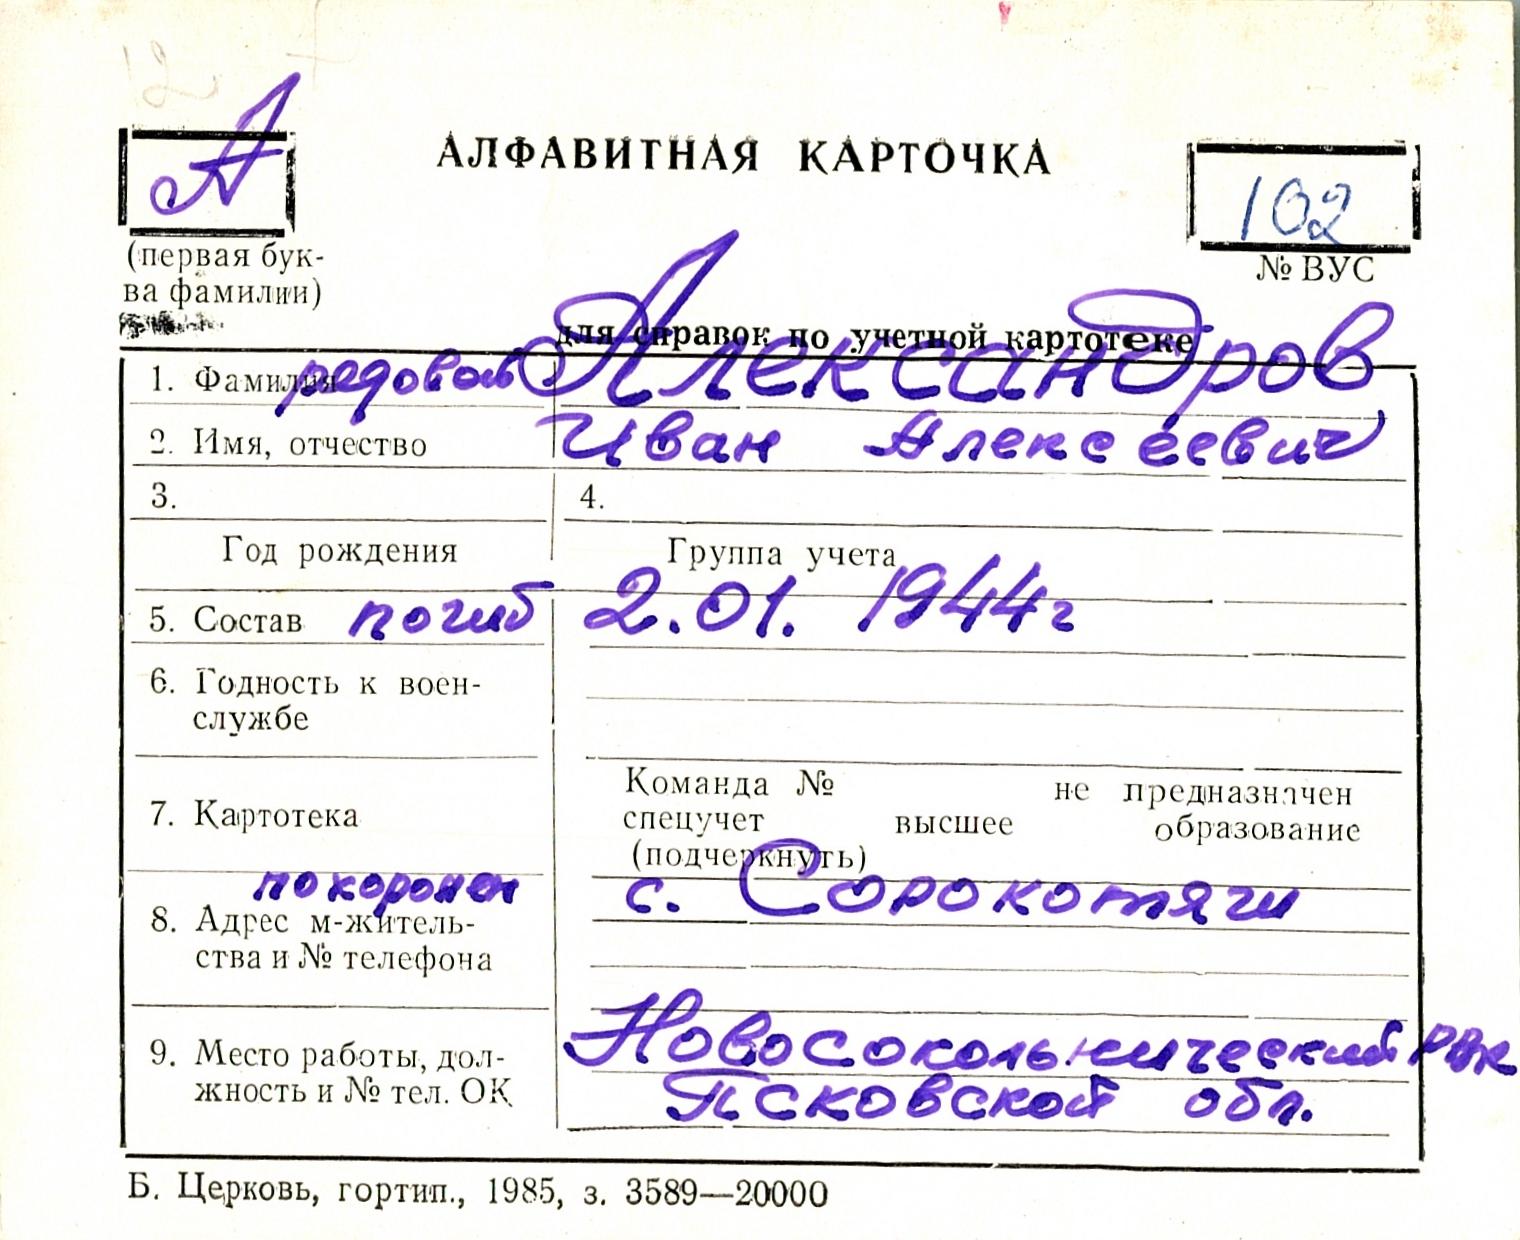 12
А
АЛФАВИТНАЯ КАРТОЧКА
102
(первая бук-
ва фамилии)
№ ВУС
для справок по учетной картотеке
1. Фамилия рядовой Александров
2. Имя, отчество Иван Алексеевич
3. 4.
Год рождения Группа учета
5. Состав погиб 2.01. 1944г
6. Годность к воен-
службе
Команда № не предназначен
7. Картотека спецучет высшее образование
(подчеркнуть)
похоронен с. Сорокотяги
8. Адрес м-житель-
ства и № телефона
9. Место работы, дол- Новосокольнический РВК
жность и № тел. ОК Псковской обл.
Б. Церковь, гортип., 1985, з. 3589—20000